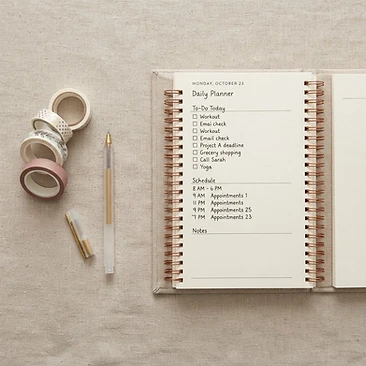 MONDAY, OCTOBER 23
Daily Planner
To-Do Today
Workout
Emai check
Workout
Email check
Project A deadline
Grocery shopping
Call Sarah
Yoga
Schedule
8 AM - 6 PM
9 AM Appointments 1
11 PM Appointments
4 PM Appointments 25
7 PM Appointments 23
Notes